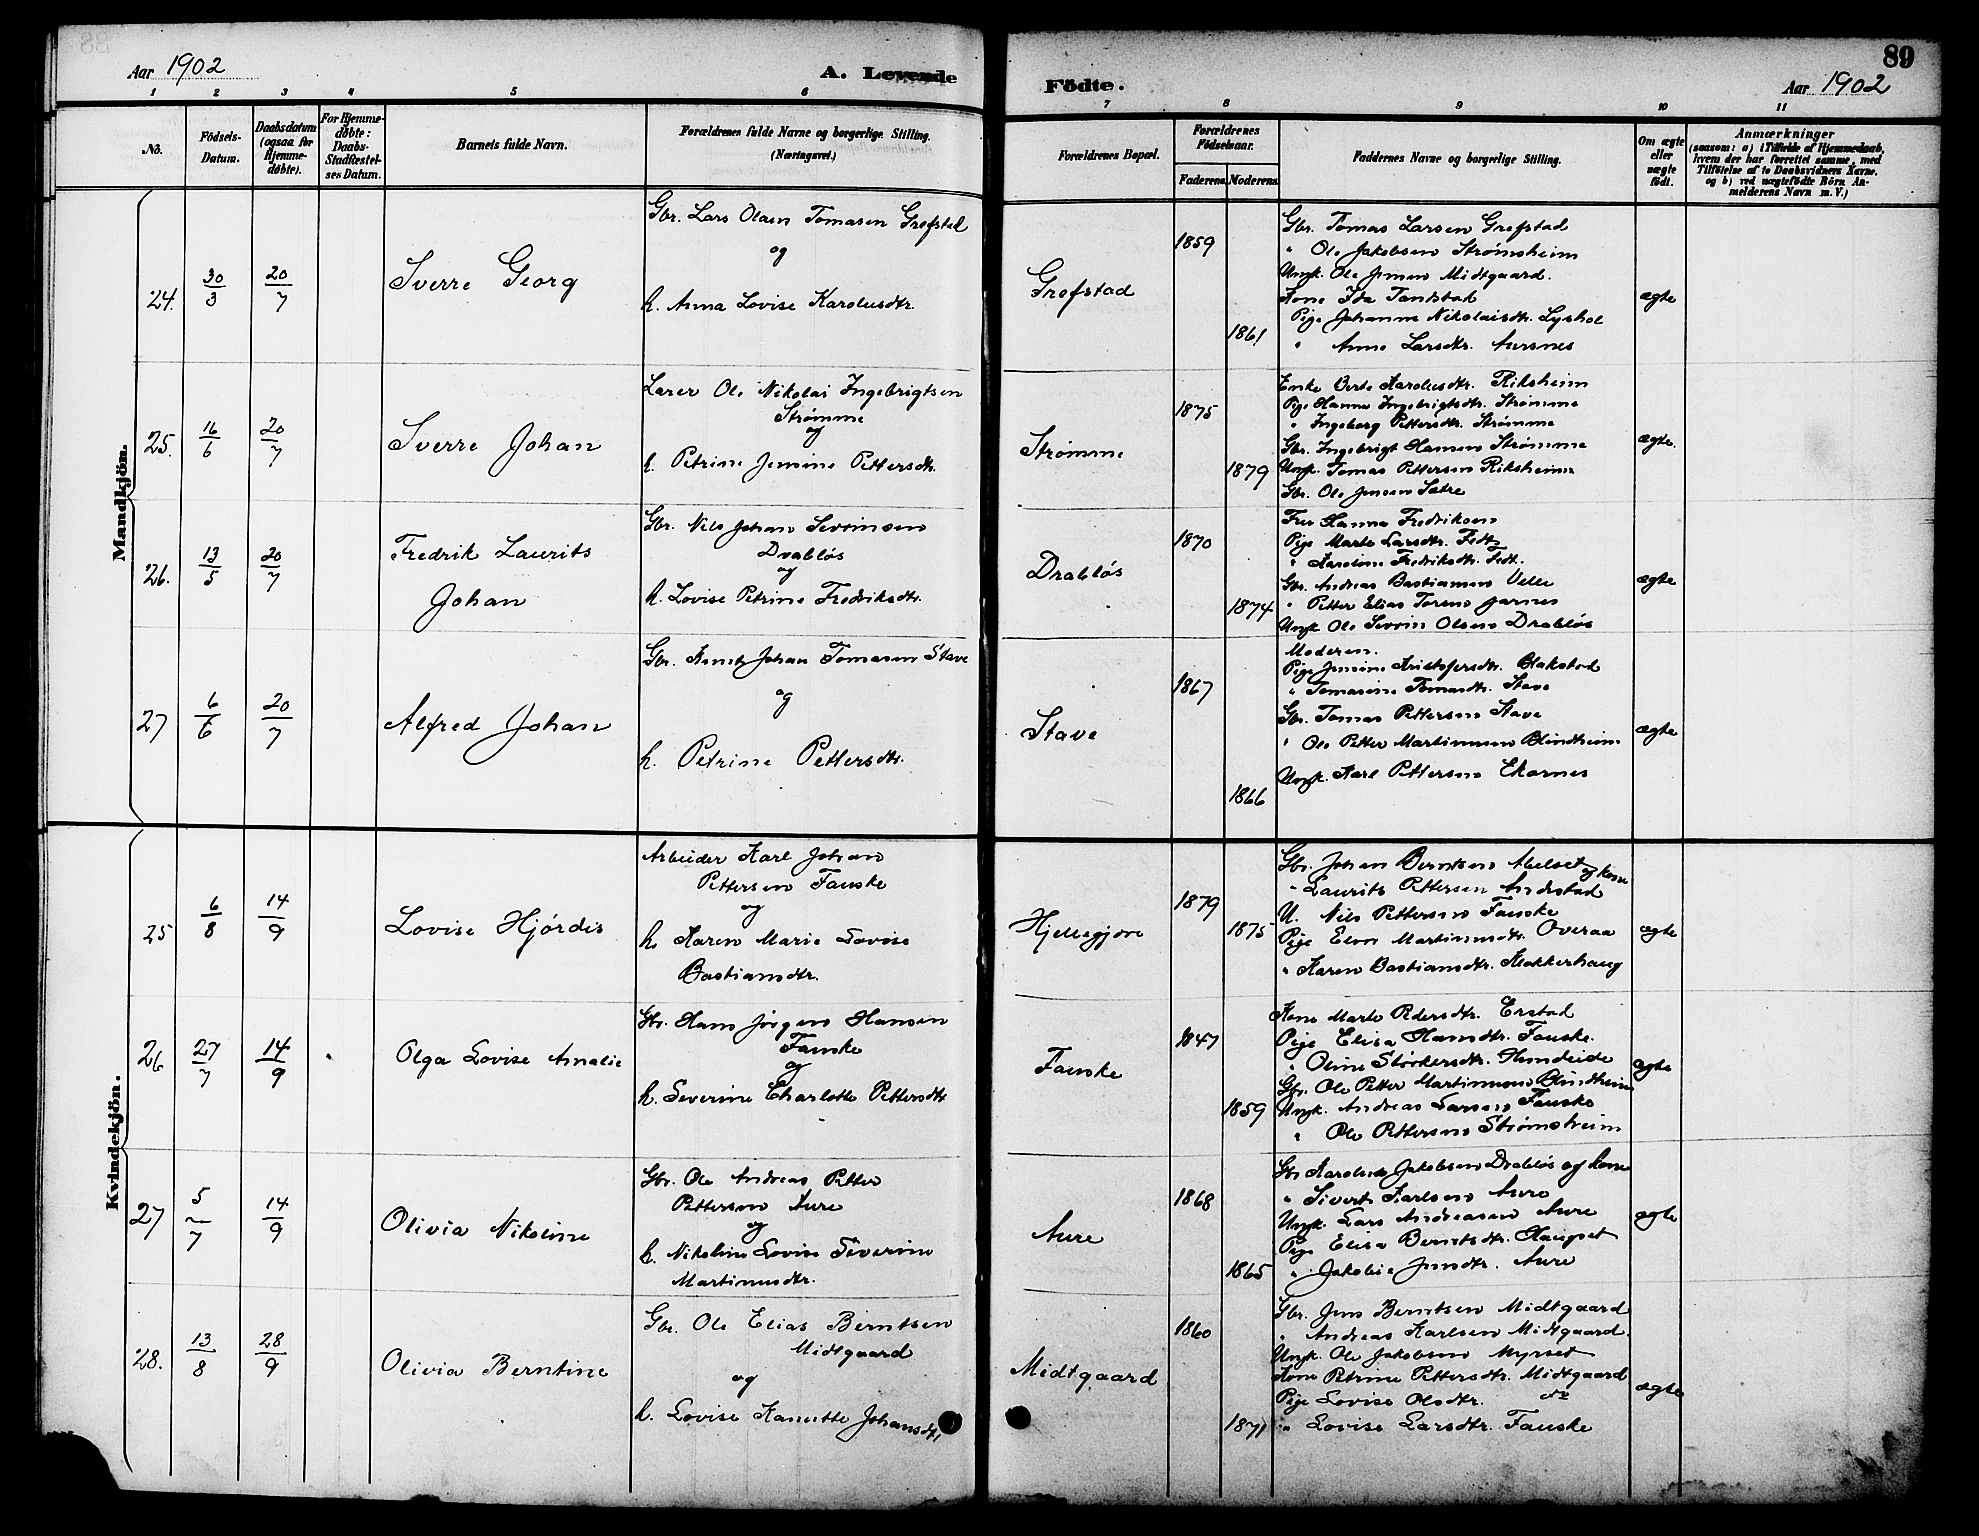 89
Aar 1902
A. Levende
Födte.
Aar 1902
1 2 3 4 5 6 7 8 9 10 11
No.
Födsels-Datum.
Daabsdatum (ogsaa for Hjemme-døbte).
For Hjemme-døbte: Daabs-Stadfæstel-ses Datum.
Barnets fulde Navn.
Forældrenes fulde Navne og borgerlige Stilling.
(Næringsvei.)
Forældrenes Bopæl.
Forældrenes Födselsaar.
Faderens. Moderens.
Faddernes Navne og borgerlige Stilling.
Om ægte eller uægte födt.
Anmærkninger
(saasom: a) i Tilfælde af Hjemmedaab,
hvem der har forrettet samme, med
Tilføielse af to Daabsvidners Navne.
og b) ved uægtefödte Börn An-
melderens Navn m. V.)
Mandkjön.
24. 30/3 20/7
Sverre Georg
Gbr. Lars Olaen Tomasen Grefstad
og
h. Anna Lovise Karolusdtr.
Grefstad
1859
1861
Gbr. Tomas Larsen Grefstad
" Ole Jakobsen Strømsheim
Ungk. Ole Jensen Midtgaard.
Kone Ida Tandstad
Pige Johanne Nikolaisdtr. Lyshol
" Anne Larsdtr. Aursnes
ægte
25. 16/6 20/7
Sverre Johan
Lærer Ole Nikolai Ingebrigtsen
Strømme
og
h. Petrine Jensine Pettersdtr.
Strømme
1875
1879
Enke Berte Karolusdtr. Riksheim
Pige Hanna Ingebrigtsdtr. Strømme
" Ingeborg Pettersdtr. Strømme
Gbr. Ingebrigt Hansen Strømme
Ungk. Tomas Pettersen Riksheim
Gbr. Ole Jensen Sætre
ægte
26. 13/5 20/7
Fredrik Laurits
Johan
Gbr. Nils Johan Sevrinsen
Drabløs
og
h. Lovise Petrine Fredriksdtr.
Drabløs
1870
1874
Fru Hanna Fredriksen
Pige Marte Larsdtr. Fedt
" Karoline Fredriksdtr. Fedt.
Gbr. Andreas Bastiansen Velle
" Petter Elias Jarnes
Ungk. Ole Sevrin Olsen Drabløs
ægte
27 6/6 20/7
Alfred Johan
Gbr. Knut Johan Tomasen Stave
og
h. Petrine Pettersdtr.
Stave
1867
1866
Moderen.
Pige Jensine Kristofersdtr. Blakstad
" Tomasine Tomasdtr. Stave
Gbr. Tomas Pettersen Stave
" Ole Petter Martinusen Blindheim
Ungk. Karl Pettersen Ekornes
ægte
Kvindekjön.
25 6/8 14/9
Lovise Hjørdis
Arbeider Karl Johan
Pettersen Fauske
og
h. Karen Marie Lovise
Bastiansdtr.
Hjellegjøre
1879
1875
Gbr. Johan Berntsen Melset og kone
" Laurits Pettersen Andestad
U. Nils Pettersen Fauske
Pige Elen Martinusdtr. Overaa
" Karen Bastiansdtr. Klokkerhaug
ægte
26 27/7 14/9
Olga Lovise Amalie
Gbr. Hans Jørgen Hansen
Fauske
og
h. Severine Charlotte Pettersdtr
Fauske
1847
1859
Kone Marte Pedersdtr. Erstad
Pige Elisa Hansdtr. Fauske.
" Oline Størkersdtr. Hundeide
Gbr. Ole Petter Martinusen Blindheim
Ungk. Andreas Larsen Fauske
" Ole Pettersen Strømsheim
ægte
27 5/7 14/9
Olivia Nikoline
Gbr. Ole Andreas Petter
Pettersen Aure
og
h. Nikoline Lovise Siverine
Martinusdtr.
Aure
1868
1865
Gbr Karolus Jakobsen Drabløs og kone
" Sivert Karlsen Aure
Ungk. Lars Andreasen Aure
Pige Elisa Berntsdtr. Haugset
" Jakobie Jensdtr. Aure
ægte
28. 13/8 28/9
Olivia Berntine
Gbr. Ole Elias Berntsen
Midtgaard
og
h. Lovise Kanutte Johansdtr
Midtgaard
1860
1871
Gbr. Jens Berntsen Midtgaard
" Andreas Karlsen Midtgaard.
Ungk. Ole Jakobsen Myrset
Kone Petrine Pettersdtr. Midtgaard
Pige Lovise Olsdtr. do
" Lovise Larsdtr. Fauske
ægte